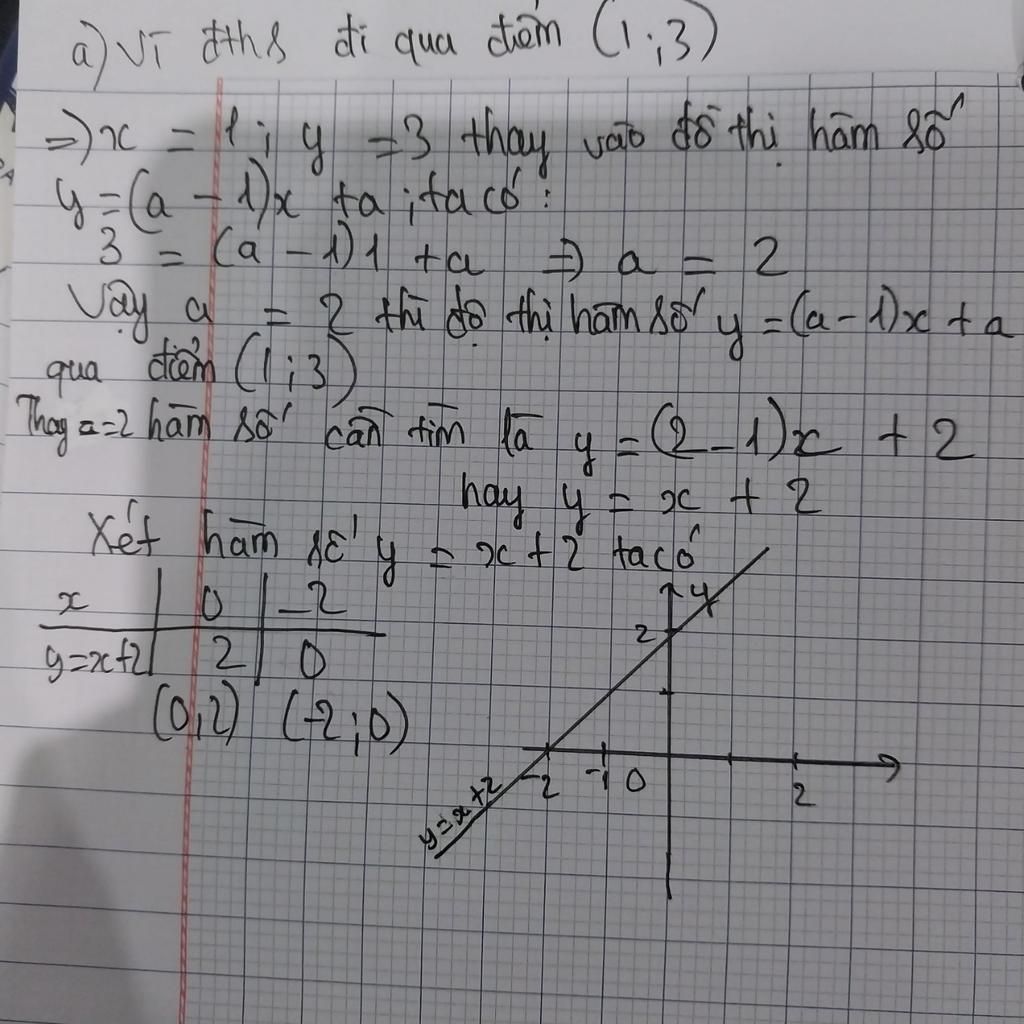 a) Vì đths đi qua điểm (1;3)
=> x = 1; y = 3 thay vào đồ thị hàm số
y = (a - 1)x + a; ta có:
3 = (a - 1)1 + a => a = 2
Vậy a = 2 thì đồ thị hàm số y = (a - 1)x + a
qua điểm (1;3)
Thay a = 2 hàm số cần tìm là y = (2 - 1)x + 2
hay y = x + 2
Xét hàm số y = x + 2 ta có
x | 0 | -2
y = x+2 | 2 | 0
(0;2) (-2;0)
y
2
-2 -1 0 2
y = x + 2